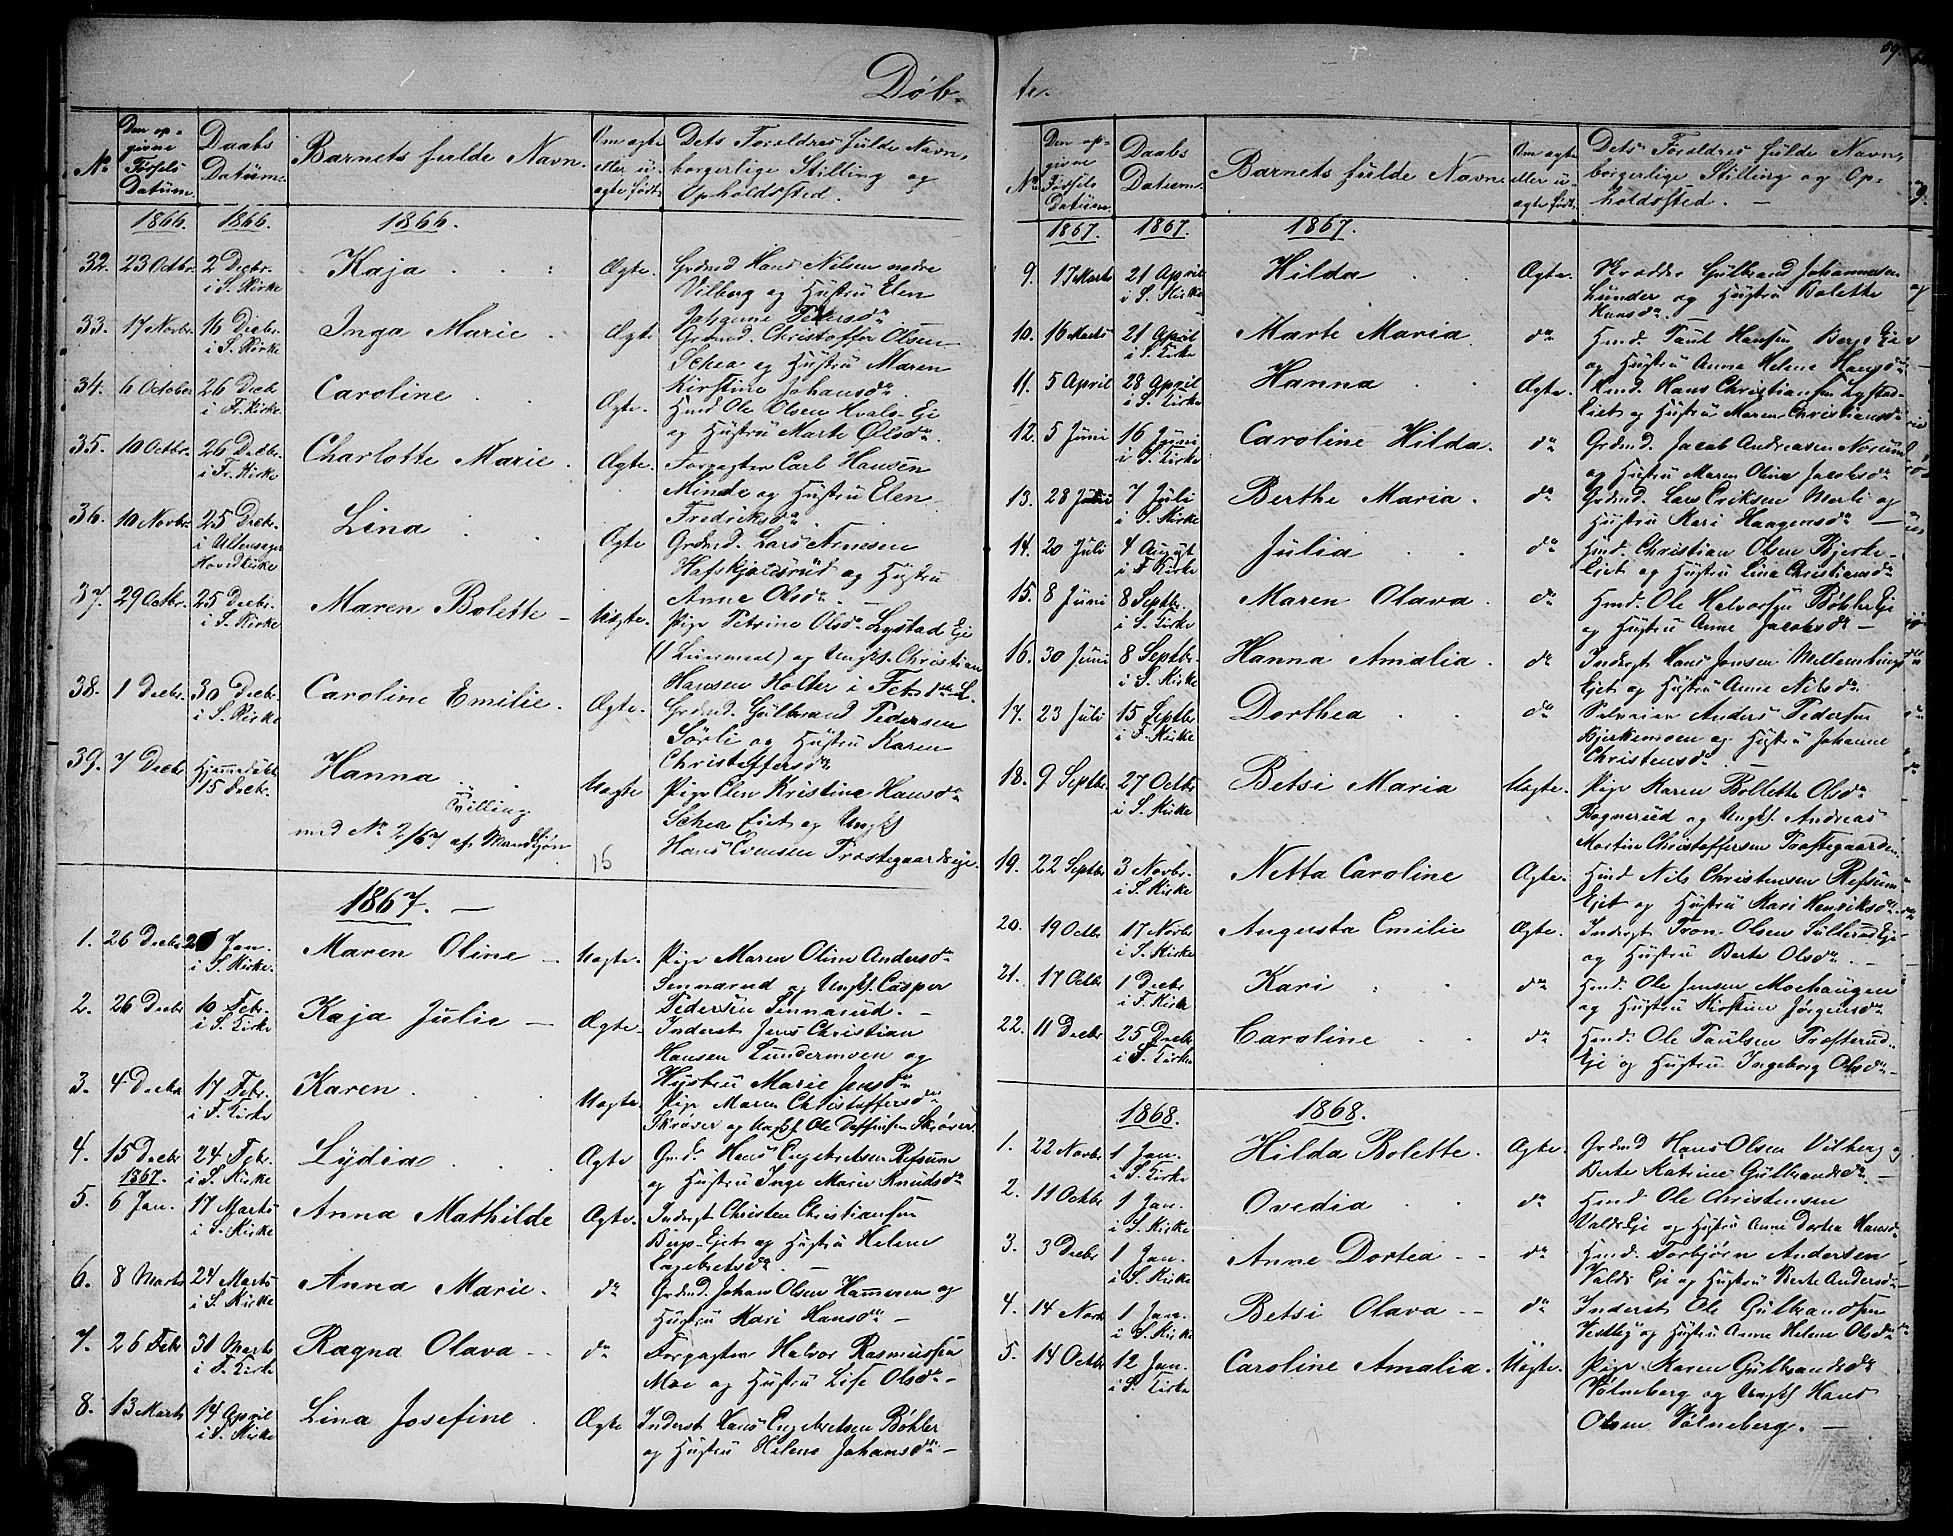 Døb-
No
Den op-
givne
Fødsels
Datum
Daabs
Datum
Barnets fulde Navn
Om ægte
eller u-
ægte født.
Dets Forældres fulde Navn,
borgerlige Stilling og
Opholdssted.
1866. 1866. 1866.
32. 23 Octbr. 2 Decbr. Kaja Ægte. Grdmd Hans Nilsen nedre
i S. Kirke Vilberg og Hustru Elen
Johanne Pedersdr
33. 17 Novbr. 16 Decbr. Inga Marie Ægte Grdmd. Christoffer Olsen
i S. Kirke Schea og Hustru Maren
Kirstine Johansdr.
34. 6 October 26 Decbr Caroline Ægte. Hmd Ole Olsen Hvals-Eje
i Fr. Kirke og Hustru Marte Olsdr.
35. 10 Octbr. 26 Decbr. Charlotte Marie. Ægte. Forpagter Carl Hansen
i Fr. Kirke Minde og Hustru Elen
Fredriksdr.
36. 10 Novbr. 25 Decbr. Lina Ægte Grdmd. Lars Arnesen
i Ullensager Hafskjoldsrud og Hustru
Hovedkirke Anne Olsdr.
37. 29 Octbr. 25 Decbr. Maren Bolette Uægte. Pige Petrine Olsdr Lystad Eje
i S. Kirke (1 Leiermaal) og Ungk. Christian
Hansen Holter i Fet
38. 1 Decbr. 30 Decbr. Caroline Emilie. Ægte. Grdmd. Gulbrand Pedersen
i S. Kirke Sørli og Hustru Karen
Christoffersdr.
39. 7 Decbr Hjemmedøbt Hanna Uægte Pige Elen Kristine Hansdr
15 Decbr. Tvilling Schea Eiet og Ungk
med No 2/67 af Mandkjøn Hans Evensen Trostegaardseje.
15
1867.
1. 26 Decbr 20 Jan. Maren Oline Uægte. Pige Maren Oline Andersdr
i S. Kirke. Sennarud og Ungk. Casper
Pedersen Sennarud.
2. 26 Decbr 10 Febr. Kaja Julie Ægte. Inderst Jens Christian
i S. Kirke Hansen Lundermoen og
Hustru Marie Jensdr
3. 4 Decbr 17 Febr. Karen Uægte. Pige Maren Christoffersdr
i F. Kirke Skrøver og Ungk. Ole Steffensen Skrøver.
4. 15 Decbr 24 Febr. Lydia Ægte Gmd. Hans Engebretsen Refsum
1867. i S. Kirke og Hustru Inge Marie Knudsdr
5. 6 Jan. 17 Marts Anna Mathilde Ægte. Inderst Christen Christiansen
i S. Kirke Buup-Ejet og Hustru Helene
Engebretsdr.
6. 8 Marts 24 Marts Anna Marie. do Grdmd. Johan Olsen Hammeren og
i S. Kirke Hustru Mari Hansdr
7. 26 Febr 31 Marts Ragna Olava do Forpagter Halvor Rasmussen
i F. Kirke Moe og Hustru Lise Olsdr
8. 13 Marts 14 April Lina Josefine Ægte Inderst Hans Engebretsen Bøhler
i S. Kirke og Hustru Helene Johansdr
te.
69.
No
Den op-
givne
Fødsels
Datum
Daabs
Datum
Barnets fulde Navn
Om ægte
eller u-
ægte født.
Dets Forældres fulde Navn,
borgerlige Stilling og Op-
holdssted.
1867. 1867. 1867.
9. 17 Marts 21 April Hilda Ægte. Skrædder Gulbrand Johannesen
i S. Kirke Lunder og Hustru Bolette
Hansdr.
10. 16 Marts 21 April Marte Maria do Hmd. Paul Hansen Berg Eje
i S. Kirke og Hustru Anne Helene Hansdr
11. 5 April 28 April Hanna Ægte. Hmd. Hans Christiansen Lystad-
i S. Kirke Eiet og Hustru Maren Christiansdr
12. 5 Juni 16 Juni Caroline Hilda. do Grdmd. Jacob Andreasen Norum
i S. Kirke og Hustru Maren Oline Jacobsdr
13. 28 Juni 7 Juli Berthe Maria. do Grdmd. Lars Eriksen Merli og
i S. Kirke Hustru Kari Haagensdr
14. 20 Juli 4 August Julia do Hmd. Christian Olsen Bjerke-
i F. Kirke Eiet og Hustru Lina Christiansdr
15. 8 Juni 8 Septbr. Maren Olava. do Hmd. Ole Halvorsen Bøhler Eje
i S. Kirke og Hustru Anne Jacobsdr
16. 30 Juni 8 Septbr. Hanna Amalia. do Inderst Hans Jensen Mellembergs
i S. Kirke Ejet og Hustru Anne Nilsdr.
17. 23 Juli 15 Septbr Dorthea do Selveier Anders Pedersen
i F. Kirke Bjerkemoen og Hustru Johanne
Christensdr.
18. 9 Septbr 27 Octbr Betsi Maria Uægte. Pige Karen Bollette Olsdr
i S. Kirke Bognerud og Ungk. Andreas
Martin Christoffersen Trostegaarden
19. 22 Septbr 3 Novbr. Netta Caroline Ægte. Hmd. Nils Christensen Refsum
i S. Kirke Ejet og Hustru Mari Henriksdr.
20. 19 Octbr 17 Novbr. Augusta Emilie Ægte. Inderst Tron Olsen Sulterud Eje
i S. Kirke og Hustru Berte Olsdr.
21. 17 Octbr 1 Decbr Kari do Hmd. Ole Jensen Moehaugen
i F. Kirke og Hustru Kirstine Jørgensdr
22. 11 Decbr 25 Decbr Caroline do Hmd. Ole Paulsen Tosterud-
i S. Kirke Eje og Hustru Ingeborg Olsdr
1868. 1868.
1. 22 Novbr 1 Jan. Hilda Bolette. Ægte. Grdmd Hans Olsen Vilberg og
i S. Kirke Berte Katrine Gulbrandsdr
2. 11 Octbr 1 Jan. Ovedia do Hmd. Ole Christensen
i S. Kirke Valds Eje og Hustru Anne Dortea Hansdr
3. 3 Decbr 1 Jan. Anne Dortea do Hmd. Torbjørn Andersen
i S. Kirke Valds Eje og Hustru Berte Andersdr
4. 14 Novbr 1 Jan. Betsi Olava do Inderst Ole Gulbrandsen
i S. Kirke Vestby og Hustru Anne Helene Olsdr
5. 14 Octbr 12 Jan. Caroline Amalia. Uægte. Pige Karen Gulbrandsdr
i S. Kirke Vølneberg og Ungk Hans
Olsen Vølneberg.